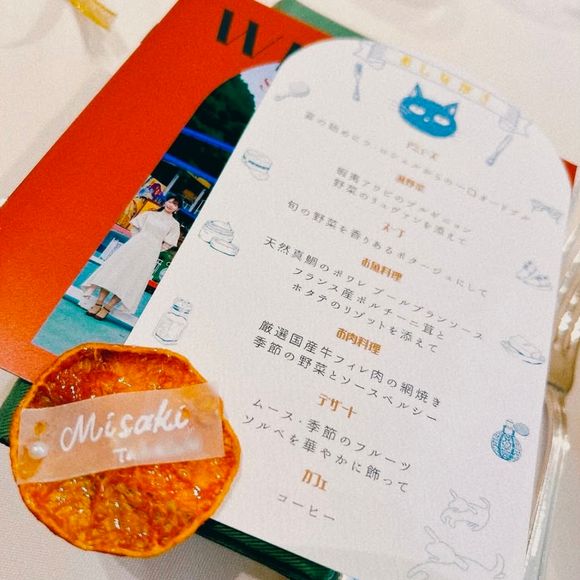 W
おしながき
アミューズ
宴の始めにラ・ロシェルからの一口オードブル
前菜
蝦夷アワビのブルギニョン
野菜のリュヴァンを添えて
スープ
旬の野菜を香りあるポタージュにして
お魚料理
天然真鯛のポワレ ブールブランソース
フランス産ポルチーニ茸と
ホタテのリゾットを添えて
お肉料理
厳選国産牛フィレ肉の網焼き
季節の野菜とソースベルシー
デザート
ムース・季節のフルーツ
ソルベを華やかに飾って
カフェ
コーヒー
Misaki